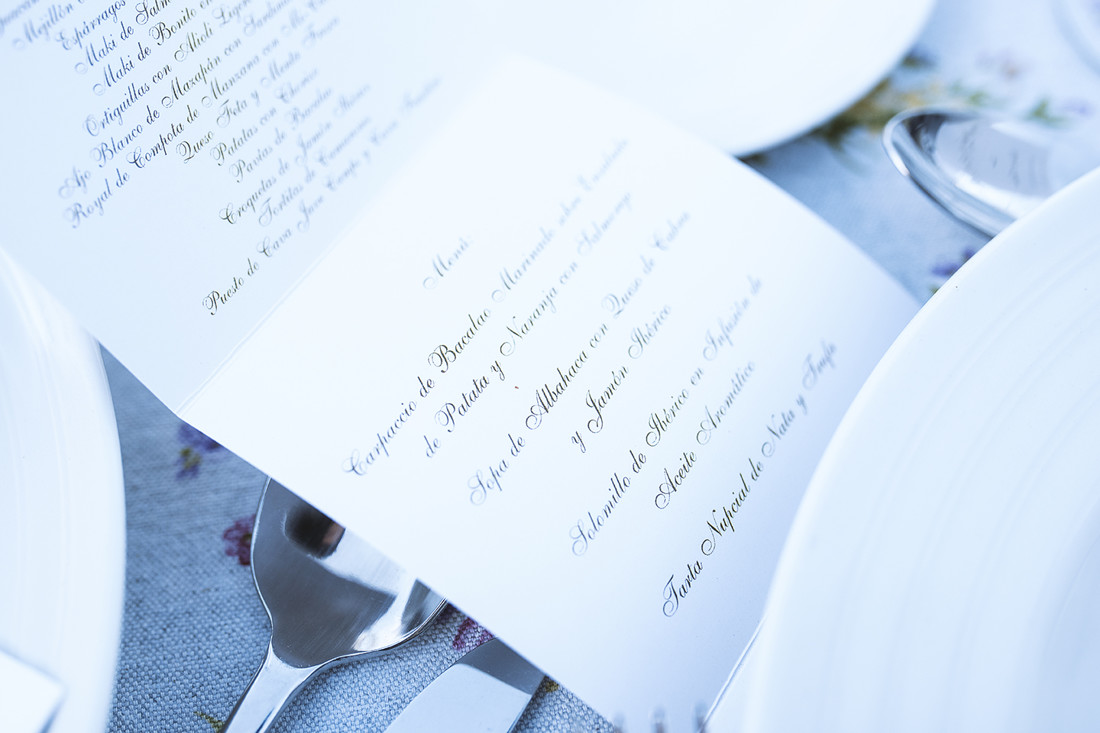 Mejillón
Espárragos
Maki de Salm
Maki de Bonito en
Ortiguillas con Alioli Ligero
Ajo Blanco de Mazapán con
Royal de Compota de Manzana con
Queso Feta y Menta
Patatas con Chorizo
Pavías de Bacalao
Croquetas de Jamón
Tortitas de Camarones
Puesto de Cava
Menú
Carpaccio de Bacalao Marinado sobre
de Patata y Naranja con Salmorejo
Sopa de Albahaca con Queso de Cabra
y Jamón Ibérico
Solomillo de Ibérico en Infusión de
Aceite Aromático
Tarta Nupcial de Nata y Trufa